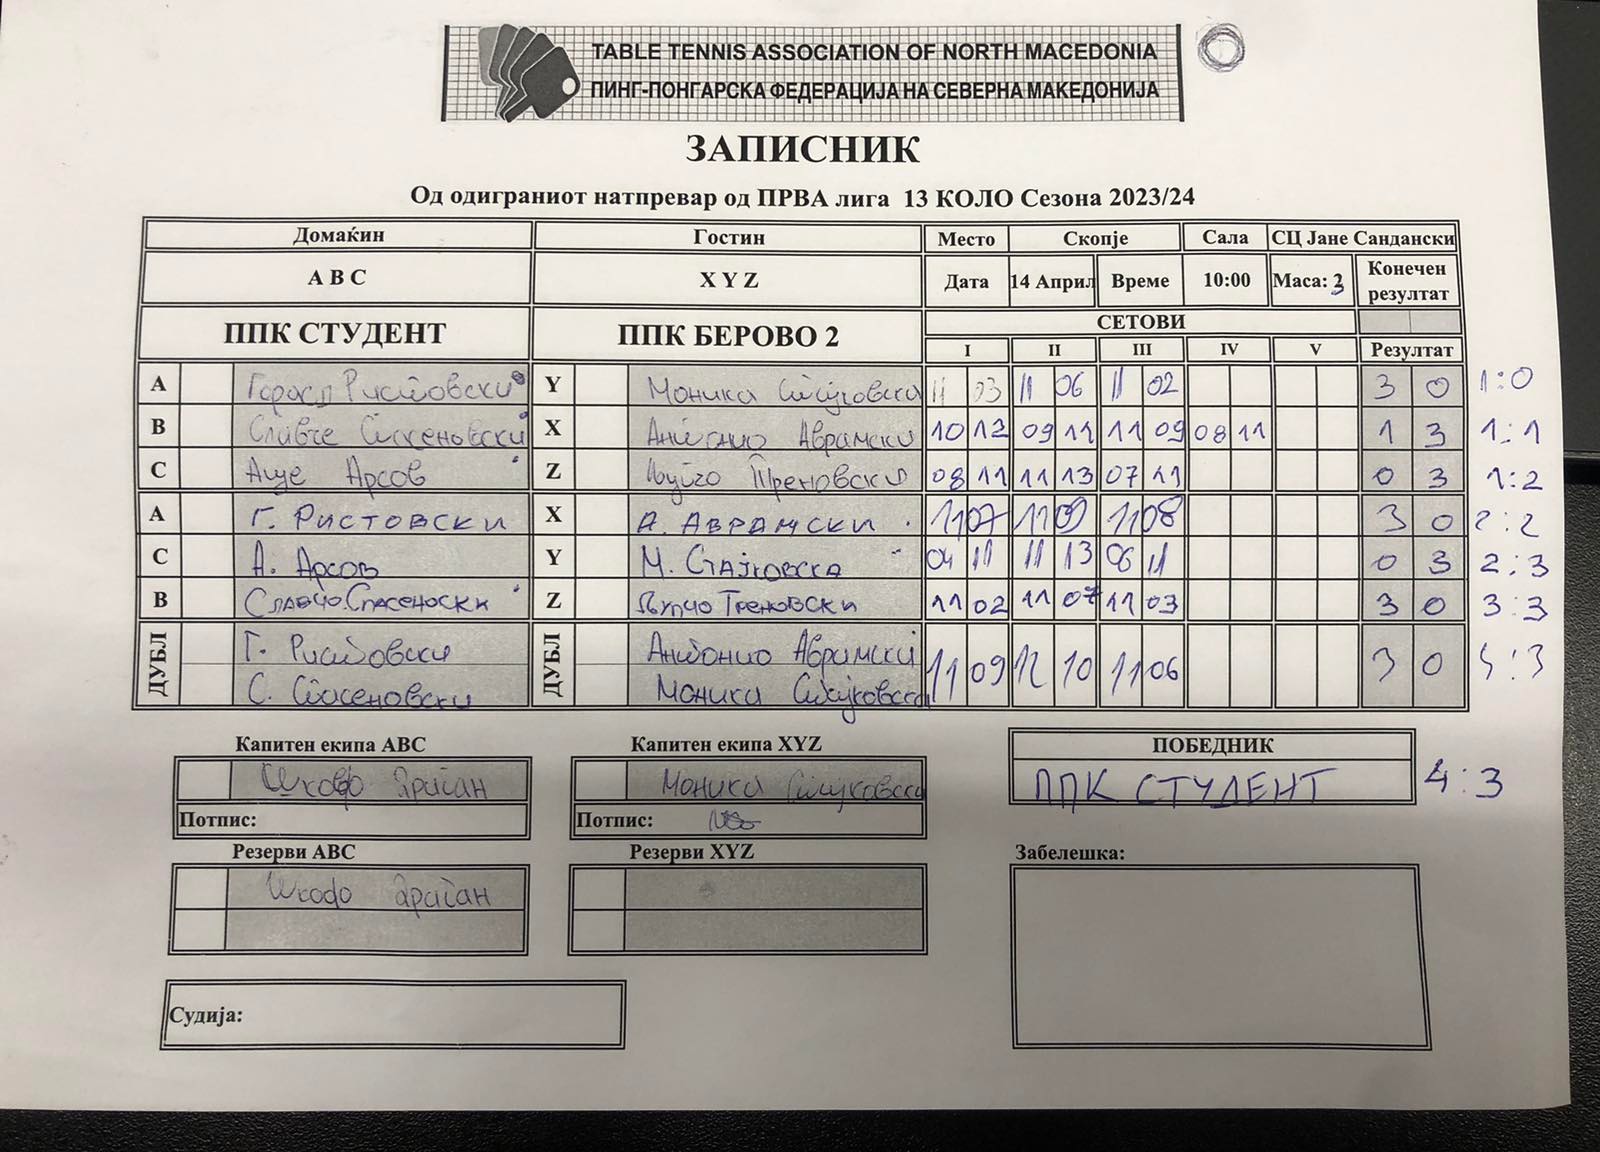 TABLE TENNIS ASSOCIATION OF NORTH MACEDONIA
ПИНГ-ПОНГАРСКА ФЕДЕРАЦИЈА НА СЕВЕРНА МАКЕДОНИЈА
ЗАПИСНИК
Од одиграниот натпревар од ПРВА лига 13 КОЛО Сезона 2023/24
Домаќин Гостин Место Скопје Сала СЦ Јане Сандански
A B C X Y Z Дата 14 Април Време 10:00 Маса: 3 Конечен резултат
ППК СТУДЕНТ ППК БЕРОВО 2 СЕТОВИ
I II III IV V Резултат
A Ристовски Y Моника Стајковска 11 03 11 06 11 02 3 0 1:0
B Славче Спасеновски X Антонио Аврамски 10 12 09 11 11 09 08 11 1 3 1:1
C Аце Арсов Z Треновски 08 11 11 13 07 11 0 3 1:2
A Г. Ристовски X А. Аврамски 11 07 11 09 11 08 3 0 2:2
C А. Арсов Y М. Стајковска 04 11 11 13 06 11 0 3 2:3
B Славчо Спасеноски Z Љупчо Треновски 11 02 11 07 11 03 3 0 3:3
ДУБЛ Г. Ристовски ДУБЛ Антонио Аврамски 11 09 12 10 11 06 3 0 :3
С. Спасеновски Моника Стајковска
Капитен екипа ABC Капитен екипа XYZ ПОБЕДНИК
Драган Моника Стајковска ППК СТУДЕНТ 4:3
Потпис: Потпис:
Резерви ABC Резерви XYZ Забелешка:
Драган
Судија: